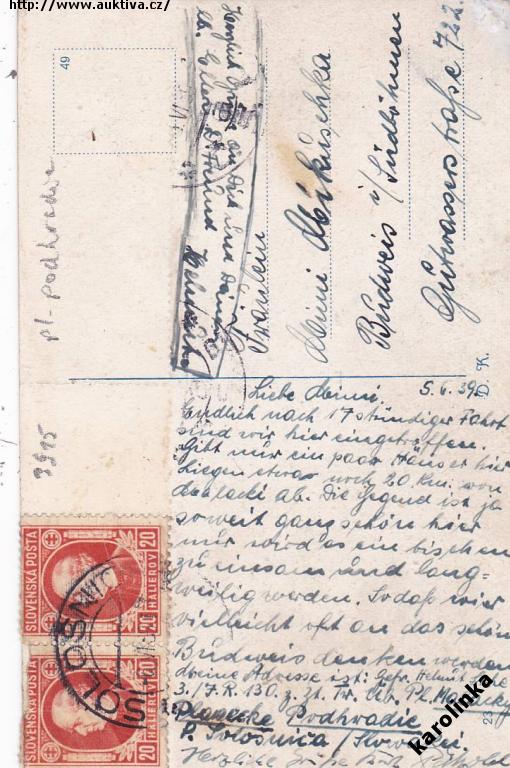 http://www.auktiva.cz/
49
pl-podhradie
3915
Fräulein
Mimi Mikuschka
Budweis i/Südböhmen
Gutwasserstraße 722.
D. K.
Liebe Mimi! 5.6.39.
Endlich nach 17 stündiger Fahrt
sind wir hier eingetroffen.
Gibt nur ein paar Häuser hier
liegen etwa noch 20 Km. von
Malacki ab. Die Gegend ist ja
soweit ganz schön hier
nur wird es ein bischen
zu einsam und lang=
weilig werden. Sodaß wir
vielleicht oft an das schöne
Budweis denken werden
meine Adresse ist: Gefr. Helmut
3./J.R. 130. z. Zt. Tr. Üb. Pl. Malacky
Plavecke Podhradie
P. Solosnica / Slowakei.
Herzliche Grüße
SLOVENSKÁ POŠTA
20
HALIEROV
20
SLOVENSKÁ POŠTA
20
HALIEROV
20
SOLOŠNICA
karolinka